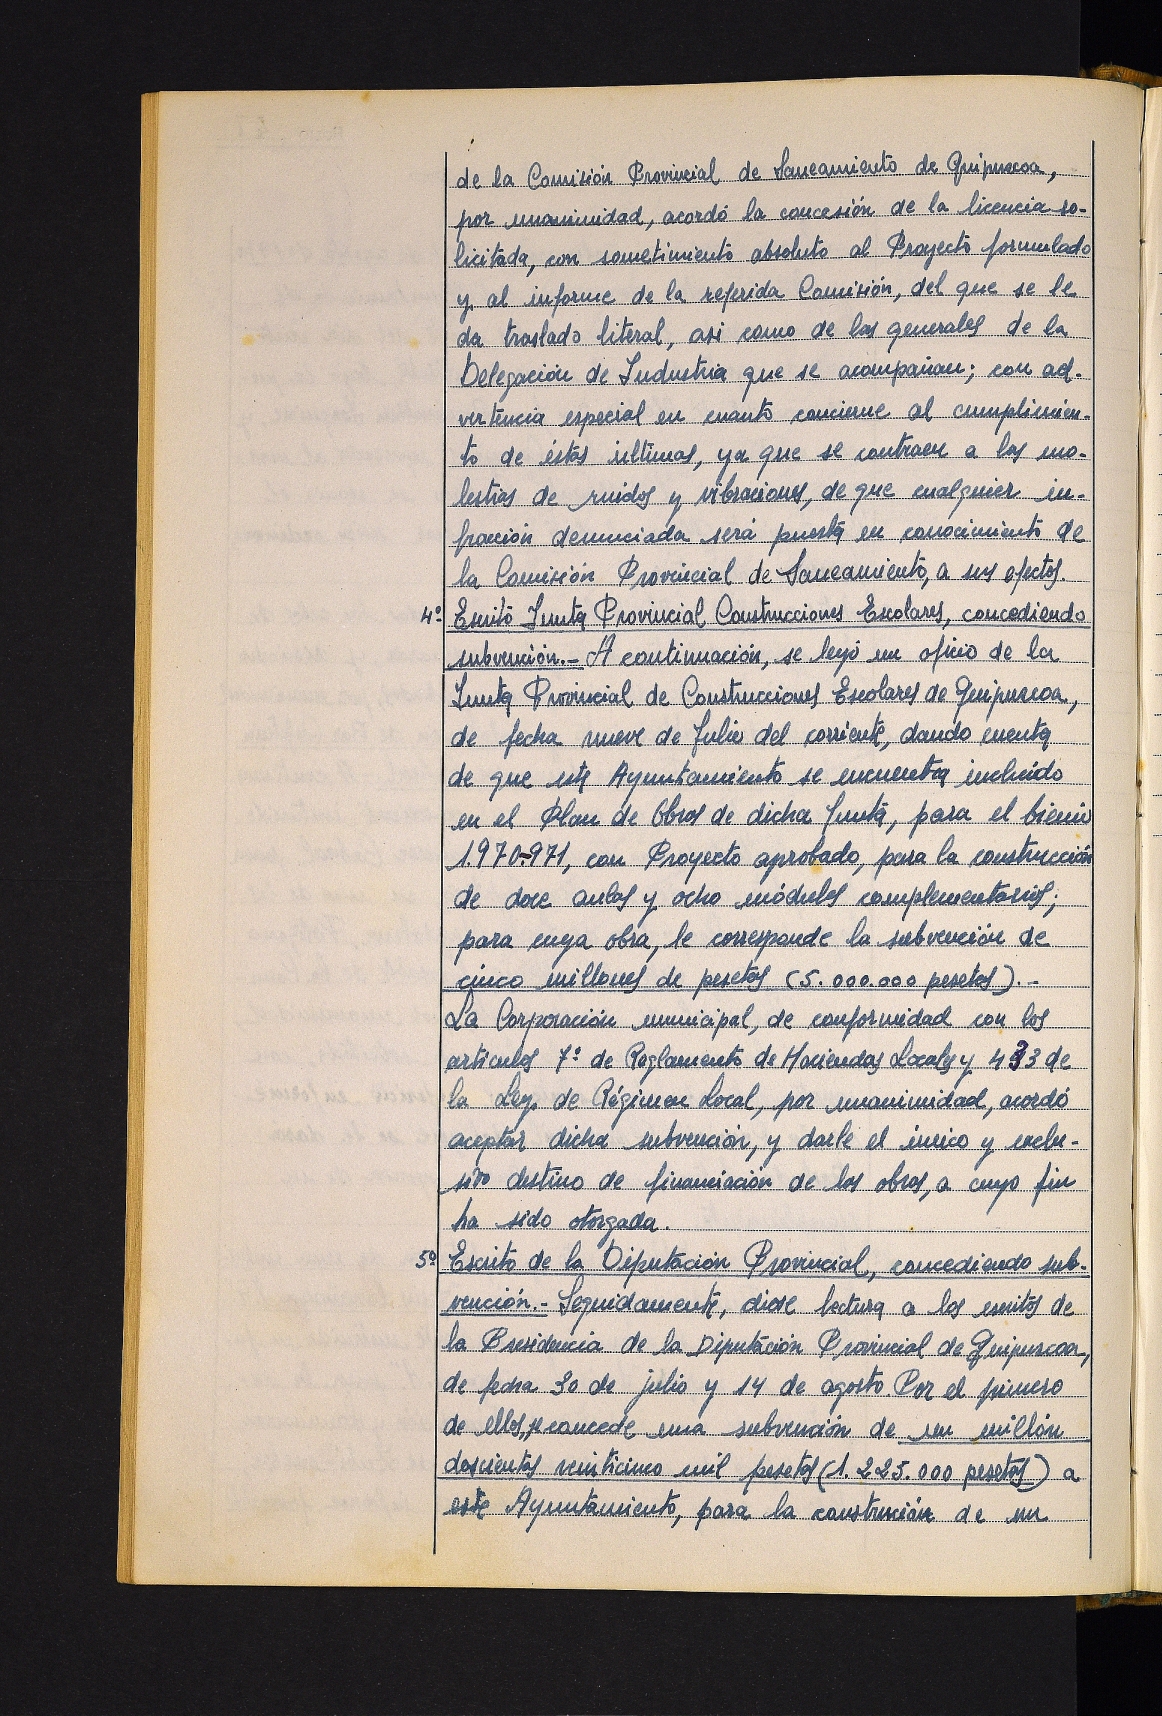 de la Comisión Provincial de Saneamiento de Guipuzcoa,
por unanimidad, acordó la concesión de la licencia so-
licitada, con sometimiento absoluto al Proyecto formulado
y al informe de la referida Comisión, del que se le
da traslado literal, asi como de las generales de la
Delegación de Industria que se acompañan; con ad-
vertencia especial en cuanto concierne al cumplimien-
to de éstas últimas, ya que se contraen a las mo-
lestias de ruidos y vibraciones, de que cualquier in-
fracción denunciada será puesta en conocimiento de
la Comisión Provincial de Saneamiento, a sus efectos.
4º Escrito Junta Provincial Construcciones Escolares, concediendo
subvención.- A continuación, se leyó un oficio de la
Junta Provincial de Construcciones Escolares de Guipuzcoa,
de fecha nueve de Julio del corriente, dando cuenta
de que este Ayuntamiento se encuentra incluido
en el Plan de Obras de dicha Junta, para el bienio
1.970-971, con Proyecto aprobado, para la construcción
de doce aulas y ocho módulos complementarios;
para cuya obra, le corresponde la subvención de
cinco millones de pesetas (5.000.000 pesetas).-
La Corporación municipal, de conformidad con los
artículos 7º de Reglamento de Haciendas Locales y 433 de
la Ley de Régimen Local, por unanimidad, acordó
aceptar dicha subvención, y darle el único y exclu-
sivo destino de financiación de las obras, a cuyo fin
ha sido otorgada.
5º Escrito de la Diputación Provincial, concediendo sub-
vención.- Seguidamente, diose lectura a los escritos de
la Presidencia de la Diputación Provincial de Guipuzcoa,
de fecha 30 de julio y 14 de agosto. Por el primero
de ellos, se concede una subvención de un millón
doscientas veinticinco mil pesetas (1.225.000 pesetas) a
este Ayuntamiento, para la construción de un